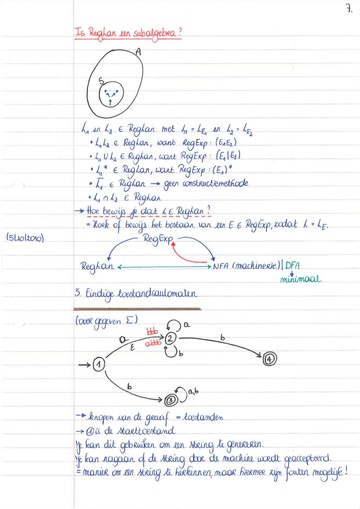 7.
Is RegLan een subalgebra?
A
S
L₁ en L₂ ∈ RegLan met L₁ = L_E₁ en L₂ = L_E₂
• L₁L₂ ∈ RegLan, want RegExp: (E₁E₂)
• L₁ ∪ L₂ ∈ RegLan, want RegExp: (E₁|E₂)
• L₁* ∈ RegLan, want RegExp: (E₁)*
• L̅₁ ∈ RegLan → geen constructiemethode
• L₁ ∩ L₂ ∈ RegLan
→ Hoe bewijs je dat L ∈ RegLan?
= Zoek of bewijs het bestaan van een E ∈ RegExp, zodat L = L_E.
RegExp
RegLan NFA (machineexie) | DFA
minimaal
3. Eindige toestandsautomaten
(voor gegeven Σ)
a
a bbb 2 b
ε abbb
b
1 4
b
3 a,b
→ knopen van de graaf = toestanden
→ ① is de starttoestand
Je kan dit gebruiken om een string te genereren.
Je kan nagaan of de string door de machine wordt geaccepteerd.
= manier om een string te herkennen, maar hiermee zijn fouten mogelijk!